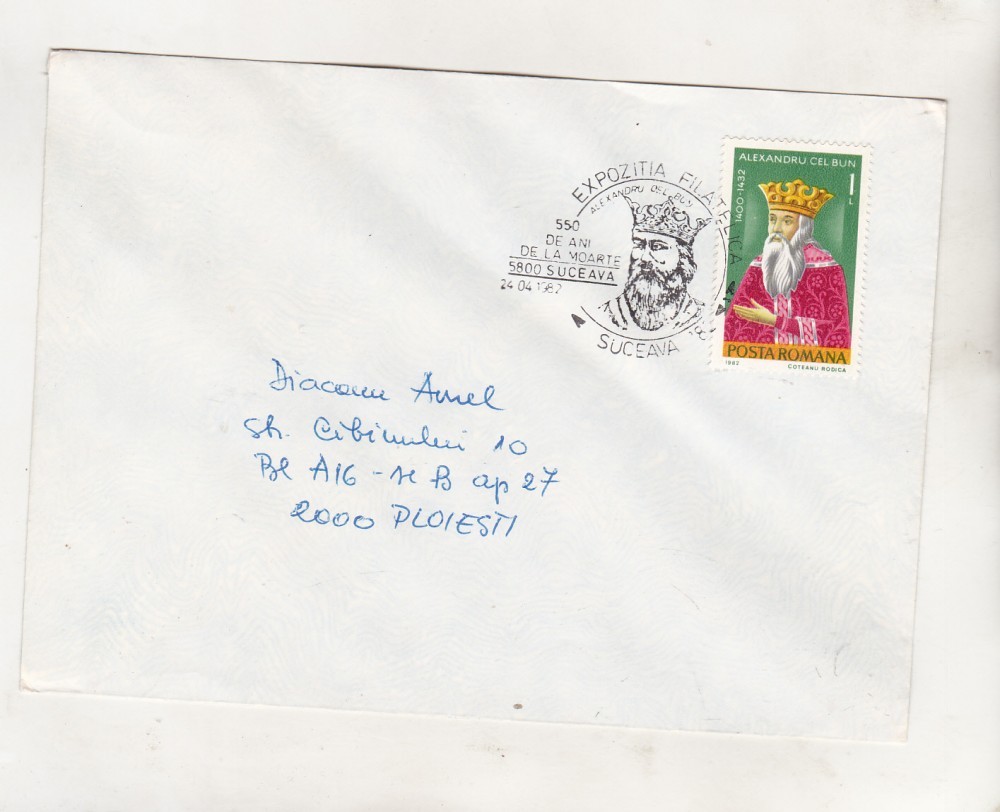 EXPOZITIA FILATELICA
ALEXANDRU CEL BUN
550
DE ANI
DE LA MOARTE
5800 SUCEAVA
24 04 1982
SUCEAVA
ALEXANDRU CEL BUN
1 L
1400-1432
POSTA ROMANA
1982 COTEANU RODICA
Diaconu Aurel
str. Cibinului 10
Bl A16 - sc B ap 27
2000 PLOIESTI